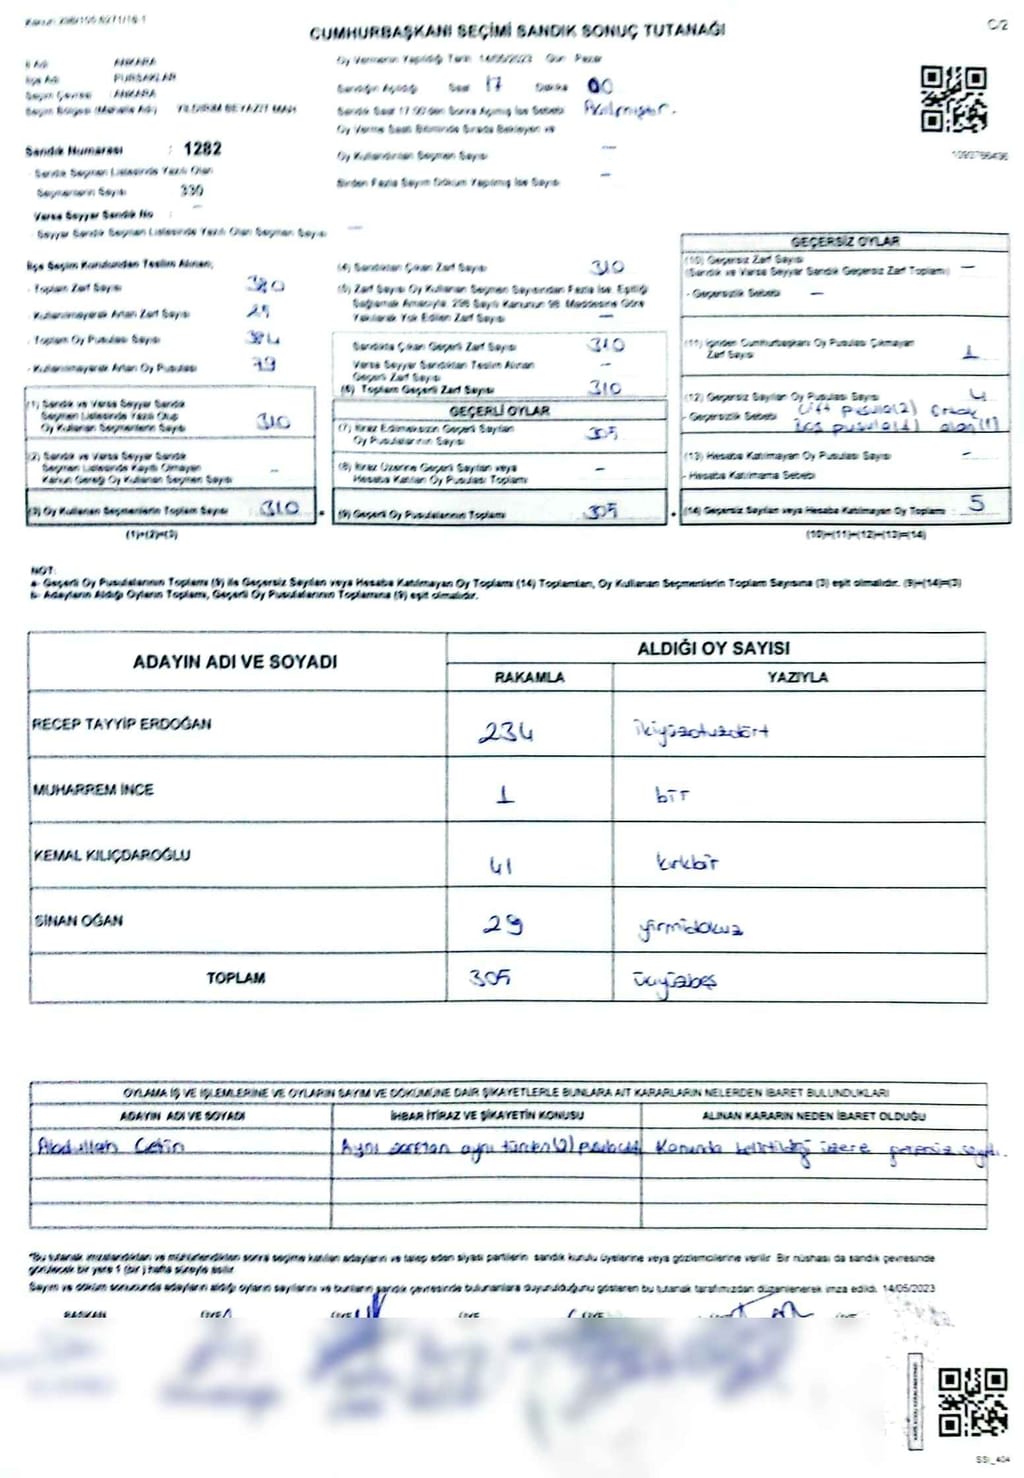 CUMHURBAŞKANI SEÇİMİ SANDIK SONUÇ TUTANAĞI
C/2
İl Adı : ANKARA
İlçe Adı : PURSAKLAR
Seçim Çevresi : ANKARA
Seçim Bölgesi (Mahalle Adı) : YILDIRIM BEYAZIT MAH.
Oy Vermenin Yapıldığı Tarih 14/05/2023 Gün Pazar
Sandığın Açıldığı Saat 17 Dakika 00
Sandık Saat 17.00'den Sonra Açılmış İse Sebebi
Oy Verme Saati Bitiminde Sırada Bekleyen ve
Oy Kullandırılan Seçmen Sayısı —
Birden Fazla Sayım Döküm Yapılmış İse Sayısı —
Sandık Numarası : 1282
- Sandık Seçmen Listesinde Yazılı Olan
Seçmenlerin Sayısı : 330
Varsa Seyyar Sandık No : —
- Seyyar Sandık Seçmen Listesinde Yazılı Olan Seçmen Sayısı : —
İlçe Seçim Kurulundan Teslim Alınan;
- Toplam Zarf Sayısı
- Kullanılmayarak Artan Zarf Sayısı
- Toplam Oy Pusulası Sayısı
- Kullanılmayarak Artan Oy Pusulası
(1) Sandık ve Varsa Seyyar Sandık
Seçmen Listesinde Yazılı Olup
Oy Kullanan Seçmenlerin Sayısı 310
(2) Sandık ve Varsa Seyyar Sandık
Seçmen Listesinde Kayıtlı Olmayan
Kanun Gereği Oy Kullanan Seçmen Sayısı —
(3) Oy Kullanan Seçmenlerin Toplam Sayısı 310
(1)+(2)=(3)
(4) Sandıktan Çıkan Zarf Sayısı 310
(5) Zarf Sayısı Oy Kullanan Seçmen Sayısından Fazla İse, Eşitliği
Sağlamak Amacıyla, 298 Sayılı Kanunun 98. Maddesine Göre
Yakılarak Yok Edilen Zarf Sayısı —
Sandıkta Çıkan Geçerli Zarf Sayısı 310
Varsa Seyyar Sandıktan Teslim Alınan
Geçerli Zarf Sayısı —
(6) Toplam Geçerli Zarf Sayısı 310
GEÇERLİ OYLAR
(7) İtiraz Edilmeksizin Geçerli Sayılan
Oy Pusulalarının Sayısı 305
(8) İtiraz Üzerine Geçerli Sayılan veya
Hesaba Katılan Oy Pusulası Toplamı —
(9) Geçerli Oy Pusulalarının Toplamı 305
GEÇERSİZ OYLAR
(10) Geçersiz Zarf Sayısı
(Sandık ve Varsa Seyyar Sandık Geçersiz Zarf Toplamı) —
- Geçersizlik Sebebi —
(11) İçinden Cumhurbaşkanı Oy Pusulası Çıkmayan
Zarf Sayısı 1
(12) Geçersiz Sayılan Oy Pusulası Sayısı 4
- Geçersizlik Sebebi Çift pusula(2) Ortak
Boş pusula(1) alan(1)
(13) Hesaba Katılmayan Oy Pusulası Sayısı —
- Hesaba Katılmama Sebebi
(14) Geçersiz Sayılan veya Hesaba Katılmayan Oy Toplamı 5
(10)+(11)+(12)+(13)=(14)
NOT:
a- Geçerli Oy Pusulalarının Toplamı (9) ile Geçersiz Sayılan veya Hesaba Katılmayan Oy Toplamı (14) Toplamları, Oy Kullanan Seçmenlerin Toplam Sayısına (3) eşit olmalıdır. (9)+(14)=(3)
b- Adayların Aldığı Oyların Toplamı, Geçerli Oy Pusulalarının Toplamına (9) eşit olmalıdır.
ADAYIN ADI VE SOYADI
ALDIĞI OY SAYISI
RAKAMLA YAZIYLA
RECEP TAYYİP ERDOĞAN 234 ikiyüzotuzdört
MUHARREM İNCE 1 bir
KEMAL KILIÇDAROĞLU 41 kırkbir
SİNAN OĞAN 29 yirmidokuz
TOPLAM 305 üçyüzbeş
OYLAMA İŞ VE İŞLEMLERİNE VE OYLARIN SAYIM VE DÖKÜMÜNE DAİR ŞİKAYETLERLE BUNLARA AİT KARARLARIN NELERDEN İBARET BULUNDUKLARI
ADAYIN ADI VE SOYADI İHBAR İTİRAZ VE ŞİKAYETİN KONUSU ALINAN KARARIN NEDEN İBARET OLDUĞU
Abdullah Çetin Aynı zarftan aynı türden(2) pusula Kanunda belirtildiği üzere geçersiz
*Bu tutanak imzalandıktan ve mühürlendikten sonra seçime katılan adayların ve talep eden siyasi partilerin sandık kurulu üyelerine veya gözlemcilerine verilir. Bir nüshası da sandık çevresinde
görülecek bir yere 1 (bir) hafta süreyle asılır.
Sayım ve döküm sonucunda adayların aldığı oyların sayılarını ve bunların sandık çevresinde bulunanlara duyurulduğunu gösteren bu tutanak tarafımızdan düzenlenerek imza edildi. 14/05/2023
BAŞKAN ÜYE ÜYE ÜYE ÜYE
SSİ_404